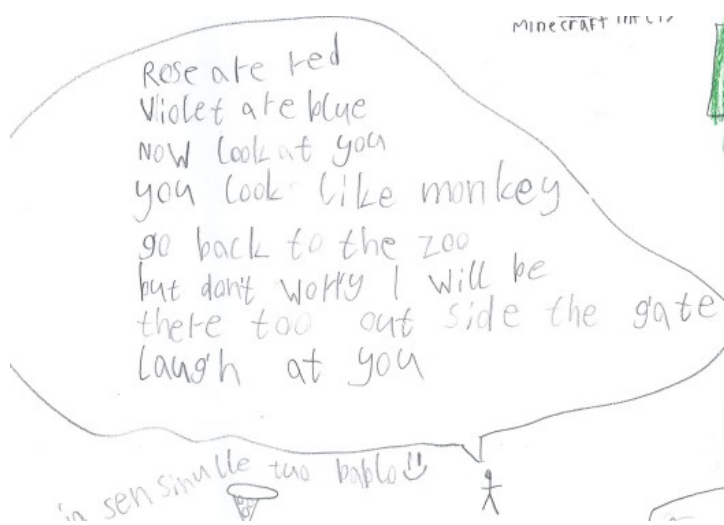 Minecraft
Rose are red
Violet are blue
Now look at you
you look like monkey
go back to the zoo
but don't worry I will be
there too out side the gate
laugh at you
sen sinulle tuo bablo